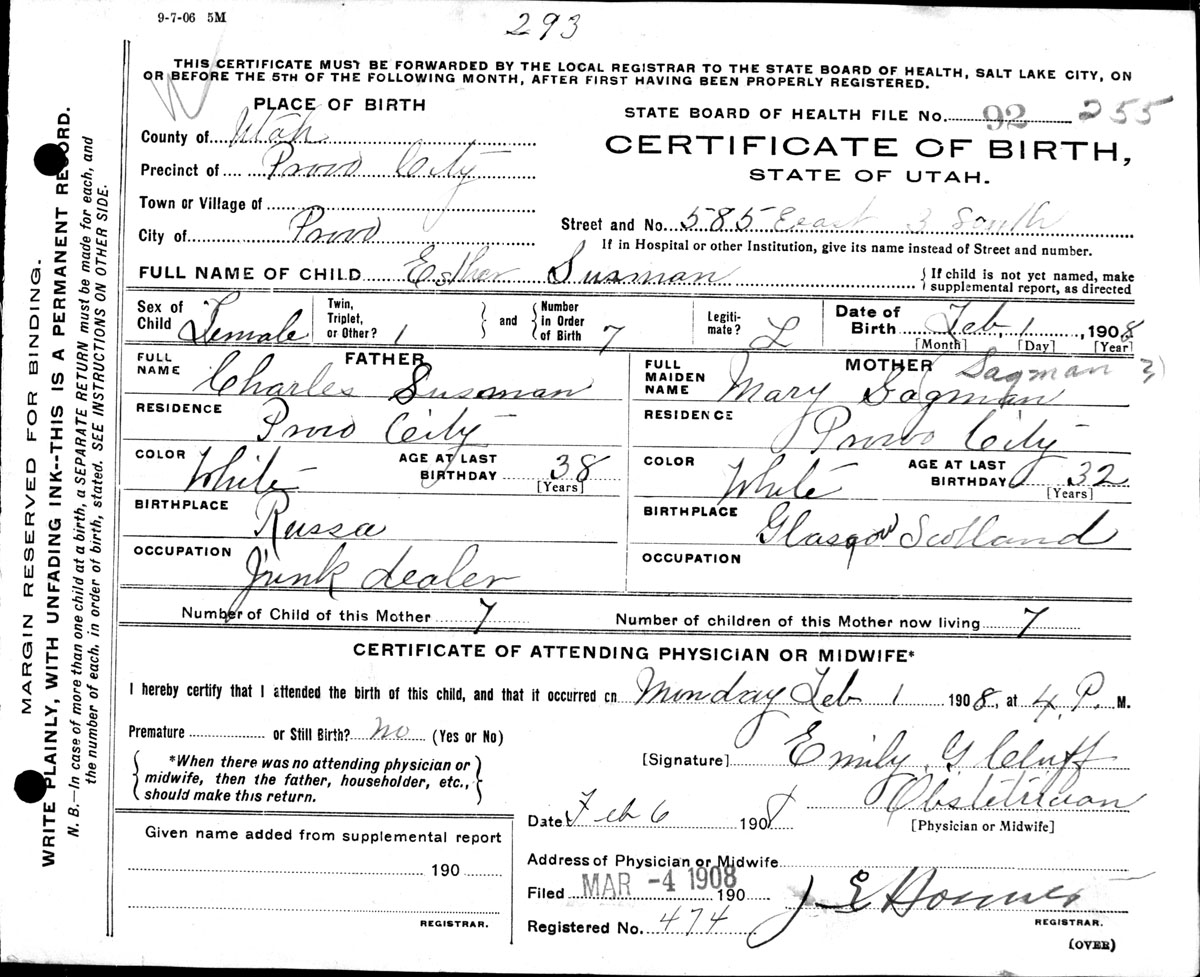 9-7-06 5M
293
THIS CERTIFICATE MUST BE FORWARDED BY THE LOCAL REGISTRAR TO THE STATE BOARD OF HEALTH, SALT LAKE CITY, ON
OR BEFORE THE 5TH OF THE FOLLOWING MONTH, AFTER FIRST HAVING BEEN PROPERLY REGISTERED.
PLACE OF BIRTH
County of Utah
Precinct of Provo City
Town or Village of
City of Provo
STATE BOARD OF HEALTH FILE No. 92 255
CERTIFICATE OF BIRTH,
STATE OF UTAH.
Street and No. 585 East 3 South
If in Hospital or other Institution, give its name instead of Street and number.
FULL NAME OF CHILD Esther Susman
{If child is not yet named, make
supplemental report, as directed
Sex of Child Female
Twin, Triplet, or Other? 1
and
Number in Order of Birth 7
Legitimate? L
Date of Birth Feb 1, 1908
[Month] [Day] [Year]
FATHER
FULL NAME Charles Susman
RESIDENCE Provo City
COLOR White AGE AT LAST BIRTHDAY 38
[Years]
BIRTHPLACE Russa
OCCUPATION Junk dealer
MOTHER Sagman
FULL MAIDEN NAME Mary Sagman
RESIDENCE Provo City
COLOR White AGE AT LAST BIRTHDAY 32
[Years]
BIRTHPLACE Glasgow Scotland
OCCUPATION
Number of Child of this Mother 7 Number of children of this Mother now living 7
CERTIFICATE OF ATTENDING PHYSICIAN OR MIDWIFE*
I hereby certify that I attended the birth of this child, and that it occurred on Munday Feb 1 1908, at 4 P. M.
Premature or Still Birth? no (Yes or No)
*When there was no attending physician or
midwife, then the father, householder, etc.,
should make this return.
[Signature] Emily G Cluff
Obstetrician
[Physician or Midwife]
Date Feb 6 1908
Given name added from supplemental report
190
REGISTRAR.
Address of Physician or Midwife
Filed MAR -4 1908 190
Registered No. 474
J E
REGISTRAR.
(OVER)
MARGIN RESERVED FOR BINDING.
WRITE PLAINLY, WITH UNFADING INK--THIS IS A PERMANENT RECORD.
N. B.—In case of more than one child at a birth, a SEPARATE RETURN must be made for each, and
the number of each, in order of birth, stated. SEE INSTRUCTIONS ON OTHER SIDE.